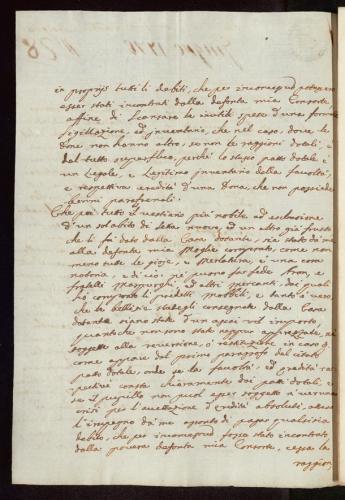 in proprijs tutti li debiti, che per inconseq.ª potessero
esser stati incontrati dalla defonta mia Consorte,
affine di scansare le inutili spese d'una formal
Sigillazione, ed inventario, che nel caso, dove le
done non hanno altro, se non le raggioni dotali, è
del tutto superfluo, perchè lo stesso patto dotale è
un Legale, e Legitimo inventario della facoltà,
e respettiva eredità d'una dona, che non possiede
beni parafernali.
Che poi tutto il vestiario più nobile ad esclusione
d'un sol abito di setta nuovo ed un altro già frusto
che li fu dato dalla Casa dotante, sia stato di me
alla defonta mia Moglie comprato, come non
meno tutte le gioje, e Merlatura è una cosa
notoria, e di ciò ne puono far fede Aron, e
fratelli Morpurghi, ed altri mercanti, dai quali
ho comprato li predetti mobbili, e tanto è vero,
che la bellissa stabegli consegnata dalla Casa
dotante siano state d'un assai vil importo,
quantiche non sono state neppur apprezzate, nè
soggette alla reversione, ò restituzione in caso q.
come appare dal primo paragrafo del citato
patto dotale, onde se la facoltà: ed eredità res=
pective consta chiaramente dai patti dotali, e
se il pupillo non puol esser soggetto a veruna
crisi per l'accettazione d'eredità absoluta, atteso
l'impegno da me assonto di pagar qualsisia
debito, che per inconseq.ª fosse stato incontrato
dalla povera defonta mia Consorte, cessa la
raggion